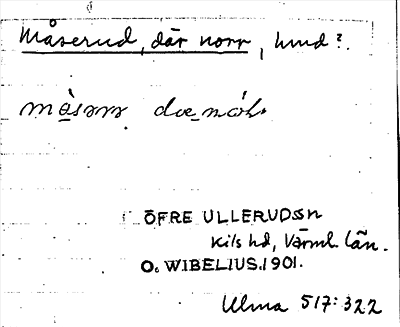 Måserud, där norr, hmd?.
mèsərər dœ nóh.
ÖFRE ULLERUDSSN
Kils hd, Värml. län.
O. WIBELIUS.1901.
Ulma 517:322